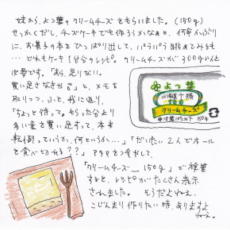 妹から、よつ葉のクリームチーズをもらいました。(150g)
せっかくだし、チーズケーキでも作ろうかなぁと、何年かぶりに
お菓子の本をひっぱり出して、パラパラ眺めてみると
…どれもケーキ1台分のレシピ。クリームチーズが300gくらい
必要です。「あら、足りない。
買い足さなきゃ」と、メモを
取りつつ、ふと、我に返り、
「ちょっと待って。もらった分より
多い量を買い足すって、本末
転倒っていうか、何というか…」「だいたい2人でホール
を食べ切れる??」
「クリームチーズ 150g」で検索
すると、レシピがたくさん表示
されました。もうだよねえ。
こじんまり作りたい時ありますよ
よつ葉
クリームチーズ